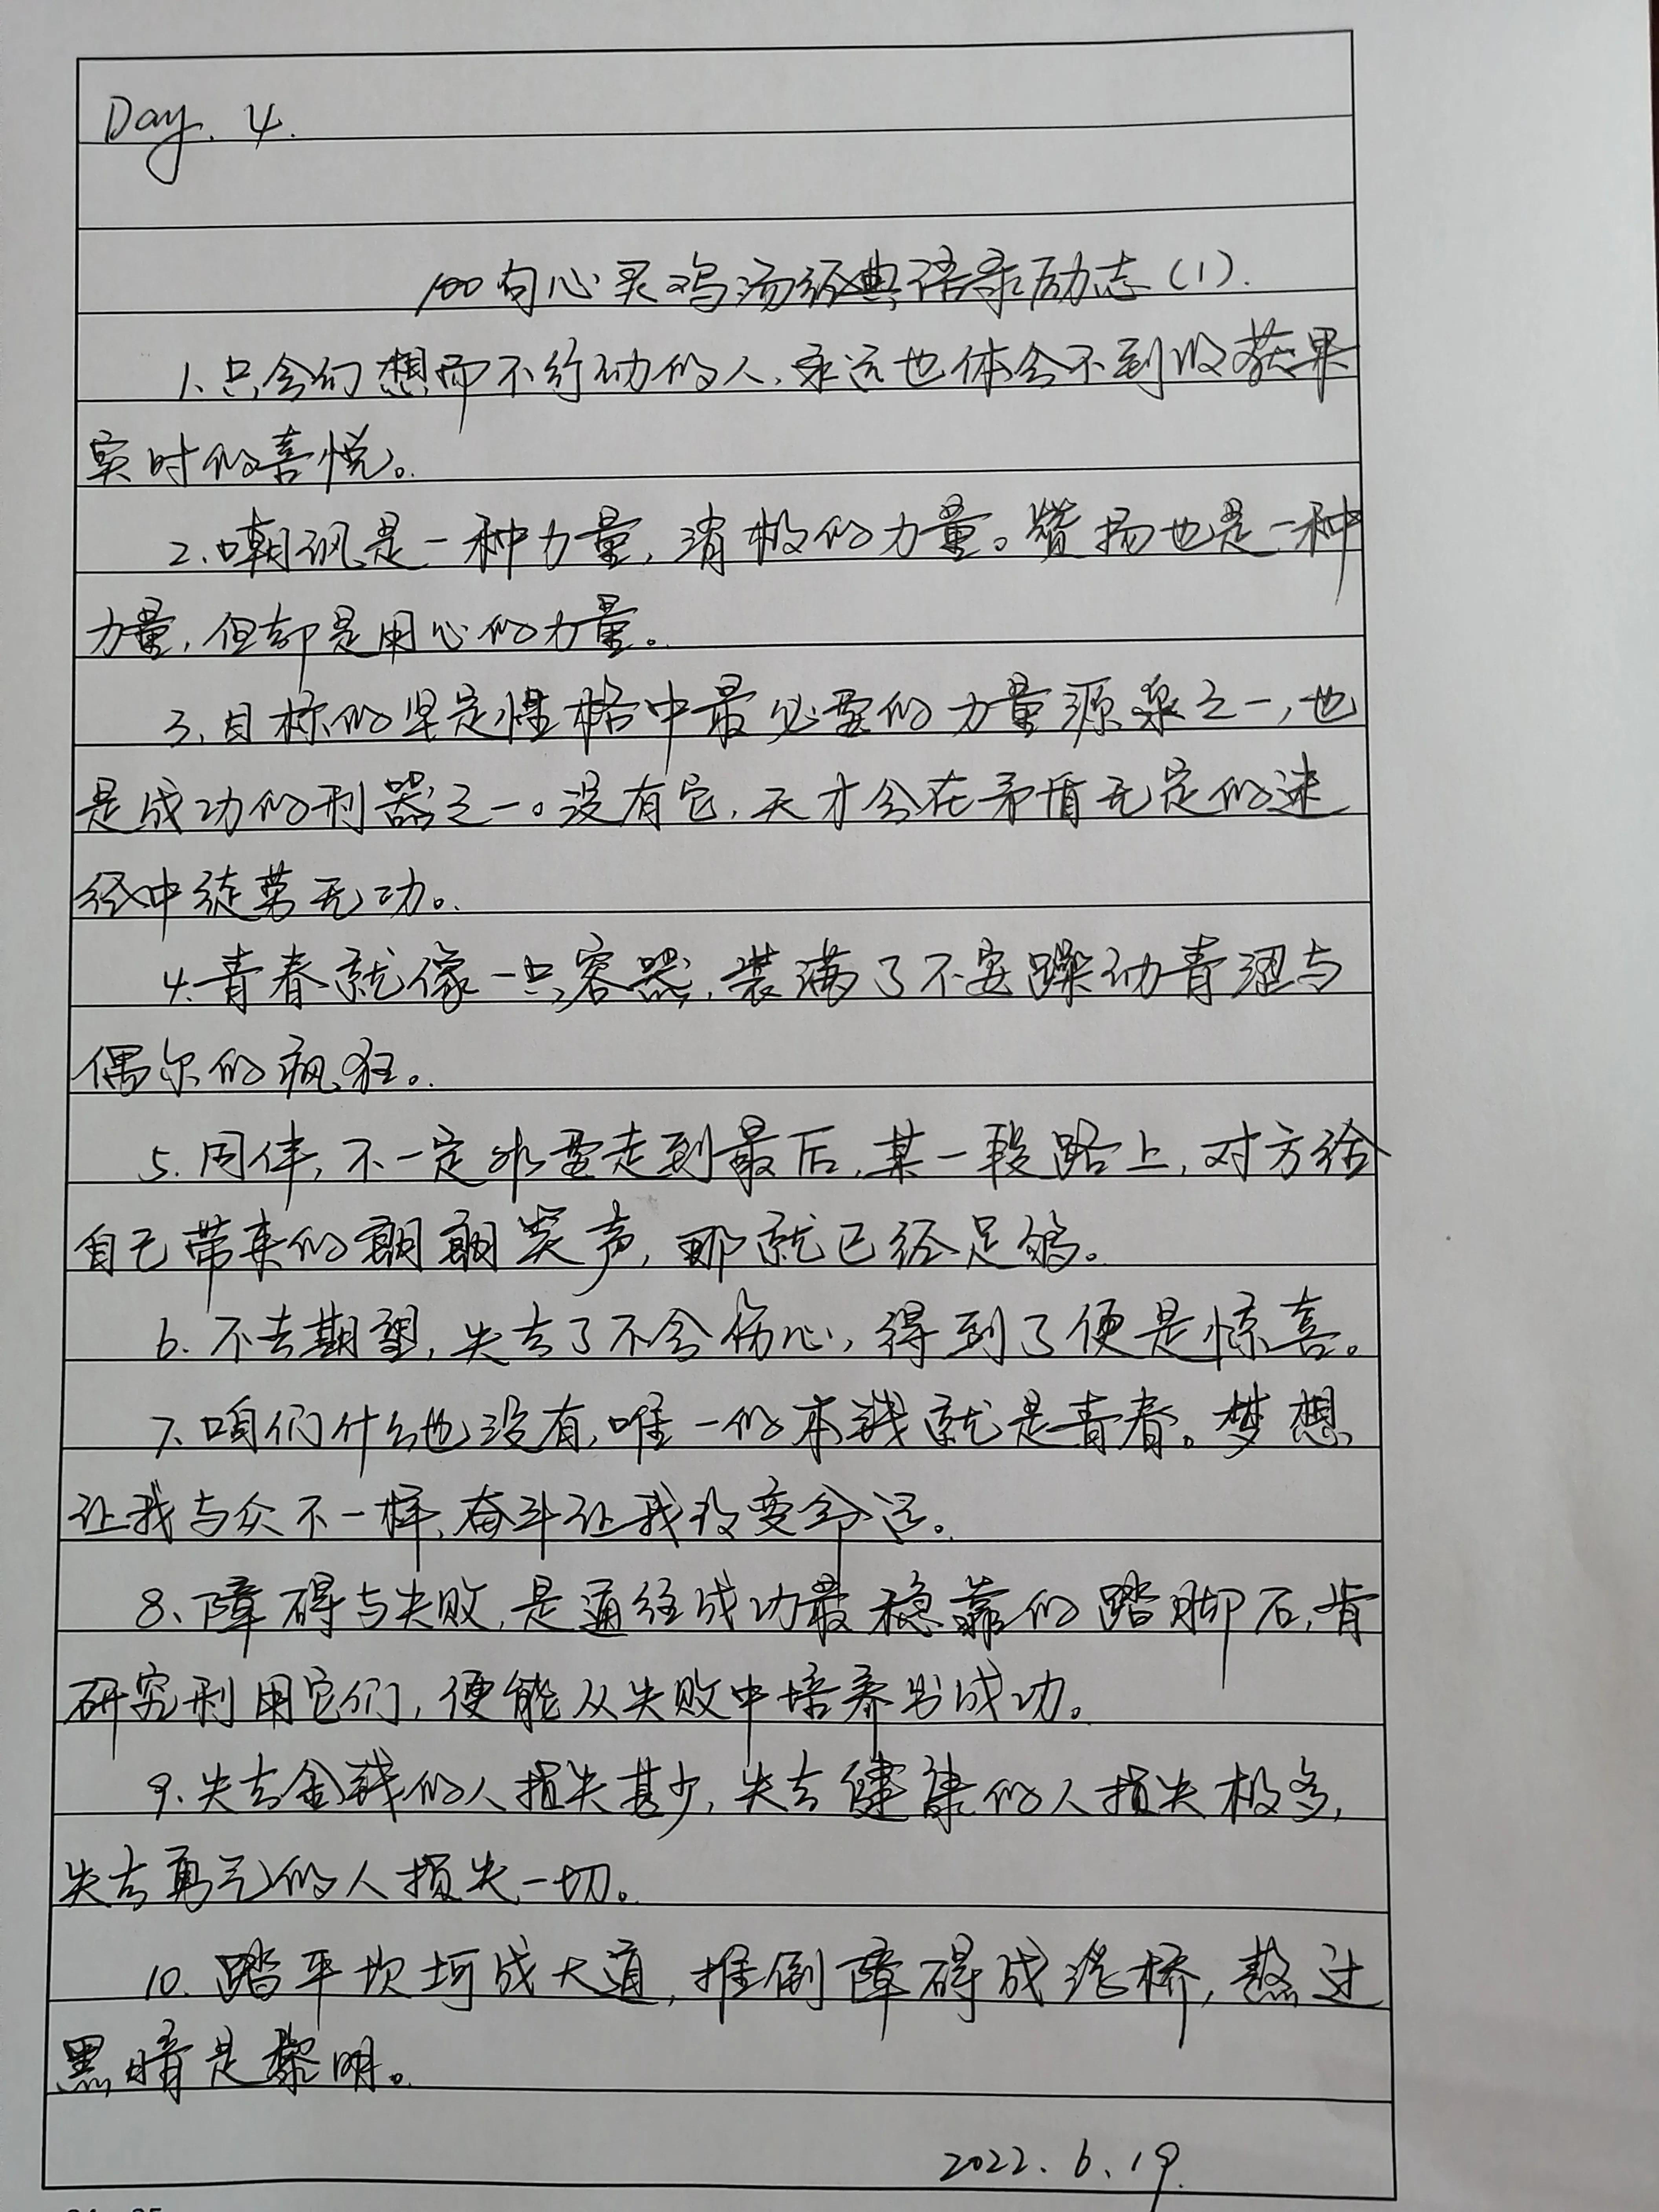 Day. 4.
100句心灵鸡汤经典语录励志(1).
1、只会幻想而不行动的人,永远也体会不到收获果
实时的喜悦。
2、嘲讽是一种力量,消极的力量。赞扬也是一种
力量,但却是用心的力量。
3、目标的坚定性格中最必要的力量源泉之一,也
是成功的利器之一。没有它,天才会在矛盾无定的迷
径中徒劳无功。
4.青春就像一只容器,装满了不安躁动青涩与
偶尔的疯狂。
5.同伴,不一定非要走到最后,某一段路上,对方给
自己带来的朗朗笑声,那就已经足够。
6.不去期望,失去了不会伤心,得到了便是惊喜。
7、咱们什么也没有,唯一的本钱就是青春。梦想
让我与众不一样,奋斗让我改变命运。
8、障碍与失败,是通往成功最稳靠的踏脚石,肯
研究利用它们,便能从失败中培养出成功。
9.失去金钱的人损失甚少,失去健康的人损失极多,
失去勇气的人损失一切。
10.踏平坎坷成大道,推倒障碍成浮桥,熬过
黑暗是黎明。
2022.6.19.